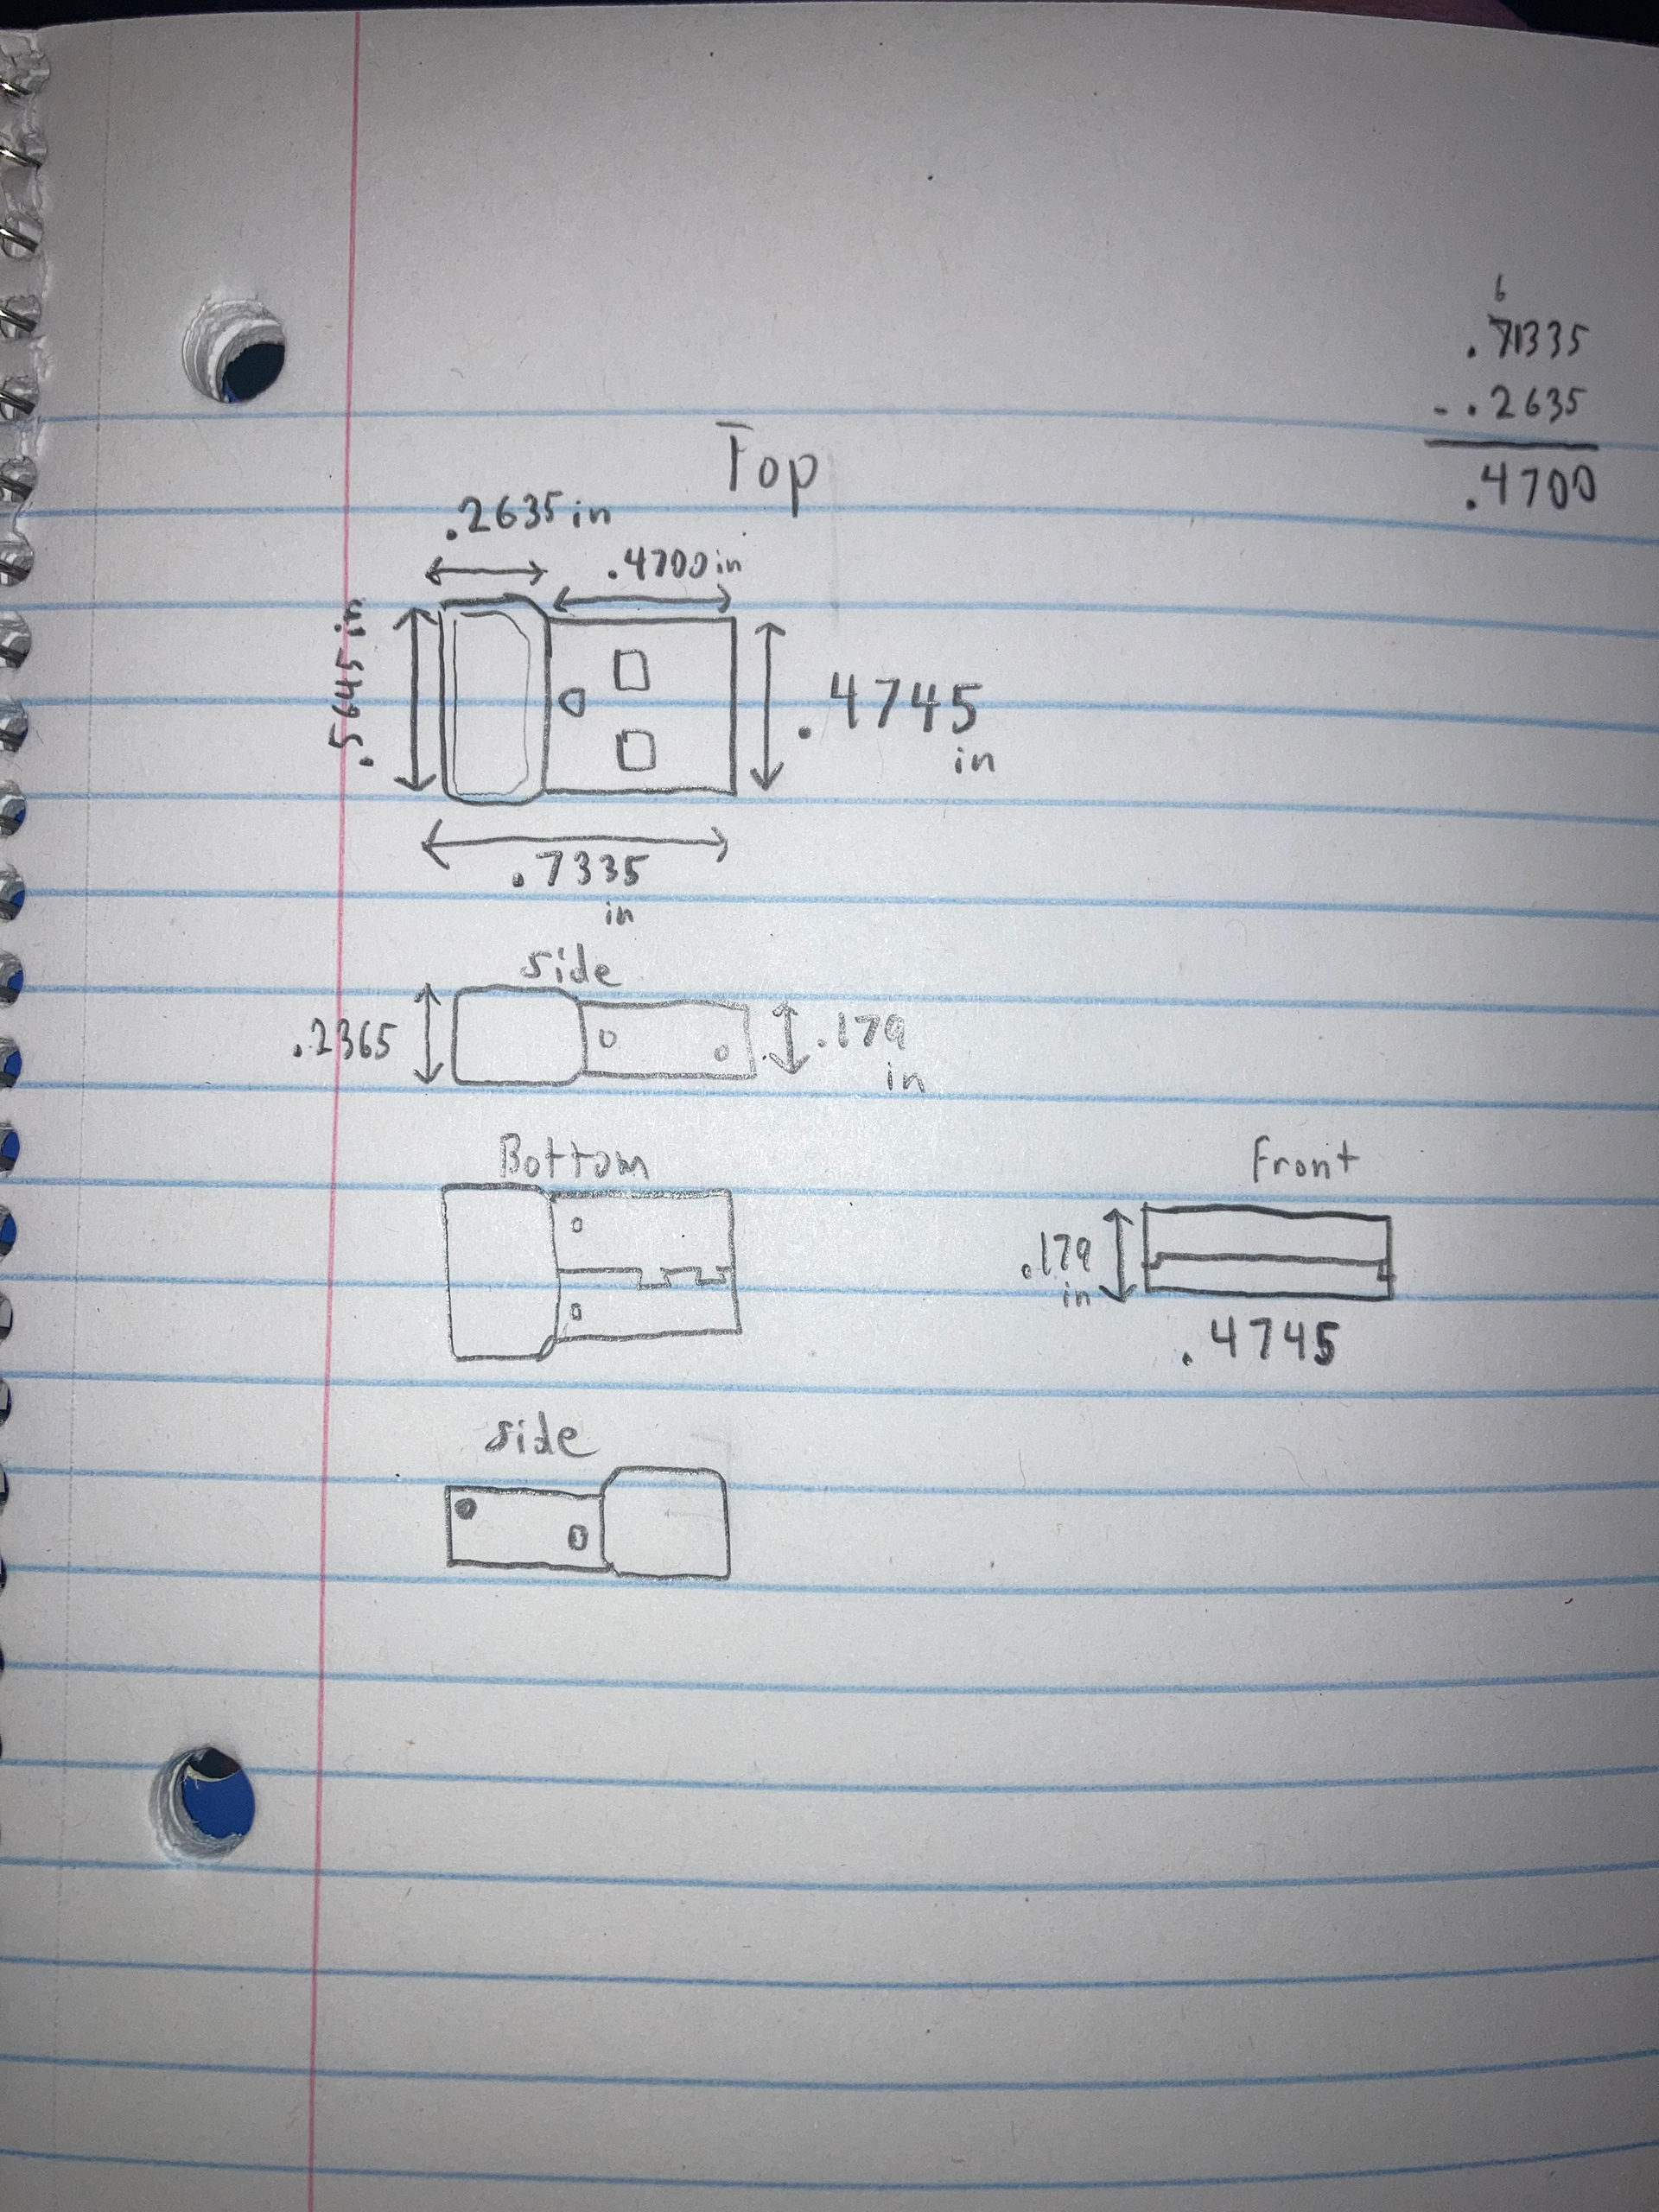 6
.71335
- .2635
.4700
Top
.2635 in
.4700 in
.5645 in
.4745
in
.7335
in
side
.2365
.179
in
Bottom
Front
.179
in
.4745
side